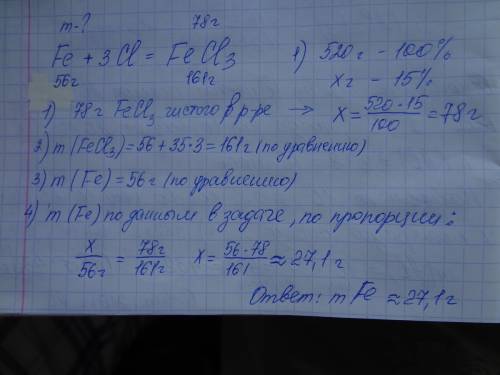 m-? 78г
Fe + 3Cl = FeCl₃
56г 161г
1) 520г - 100%
xг - 15%
1) 78г FeCl₃ чистого в р-ре → x = 520·15/100 = 78г
2) m (FeCl₃) = 56 + 35·3 = 161г (по уравнению)
3) m (Fe) = 56г (по уравнению)
4) m (Fe) по данным в задаче, по пропорции:
x/56г = 78г/161г x = 56·78/161 ≈ 27,1г
Ответ: m Fe ≈ 27,1г